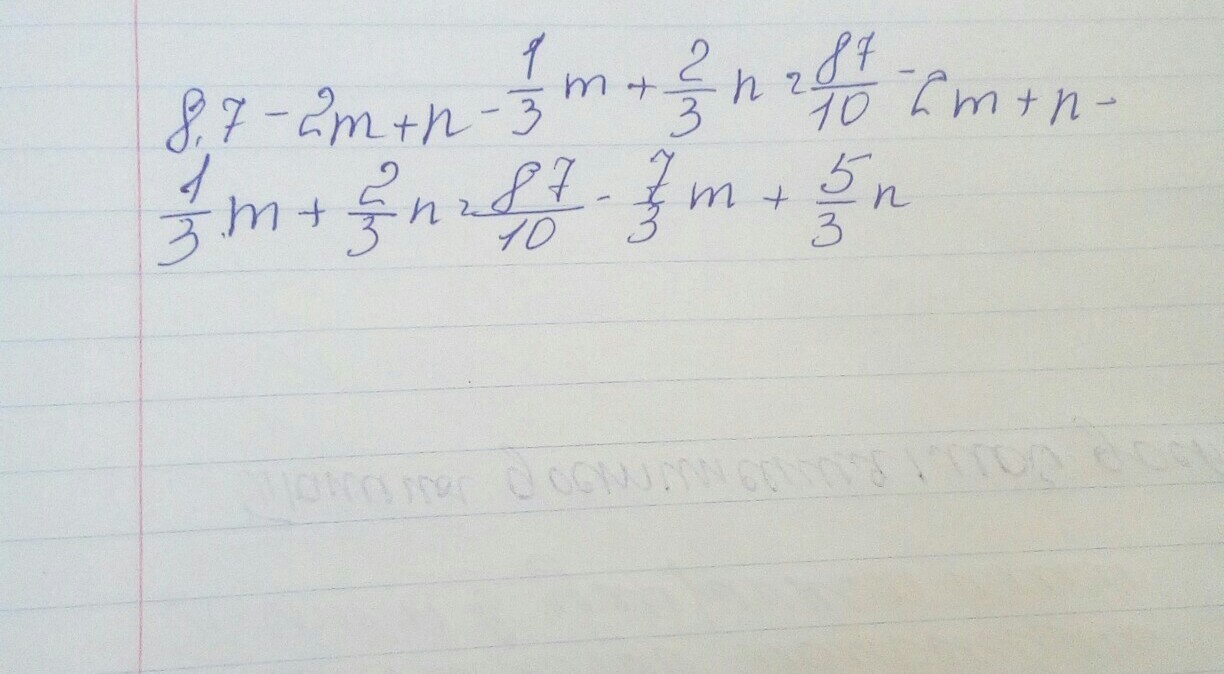 8,7 - 2m + n - 1/3 m + 2/3 n = 87/10 - 2m + n -
1/3 m + 2/3 n = 87/10 - 7/3 m + 5/3 n